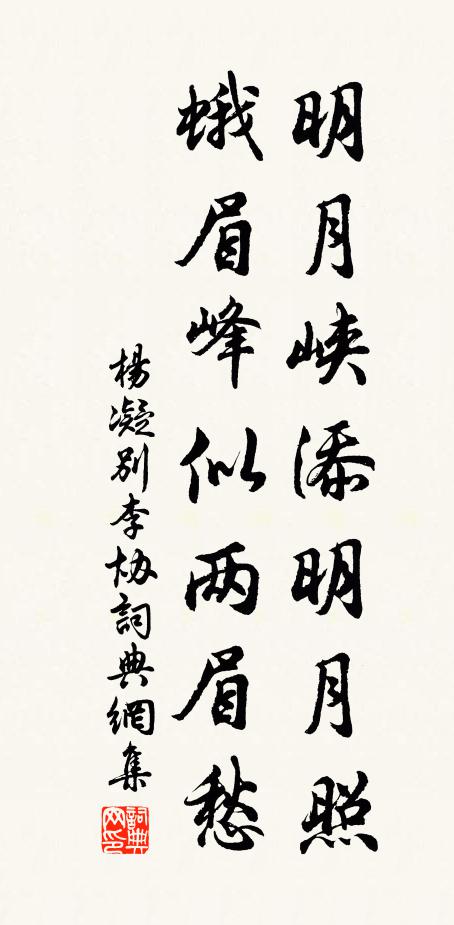 明月峡添明月照
蛾眉峰似两眉愁
楊凝别李协詞典網集
詞典网印